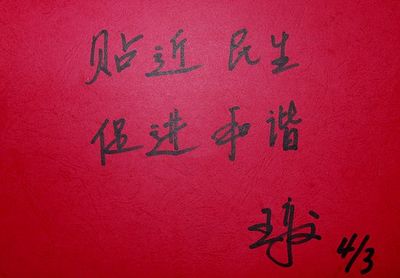 贴近民生
促进和谐
4/3